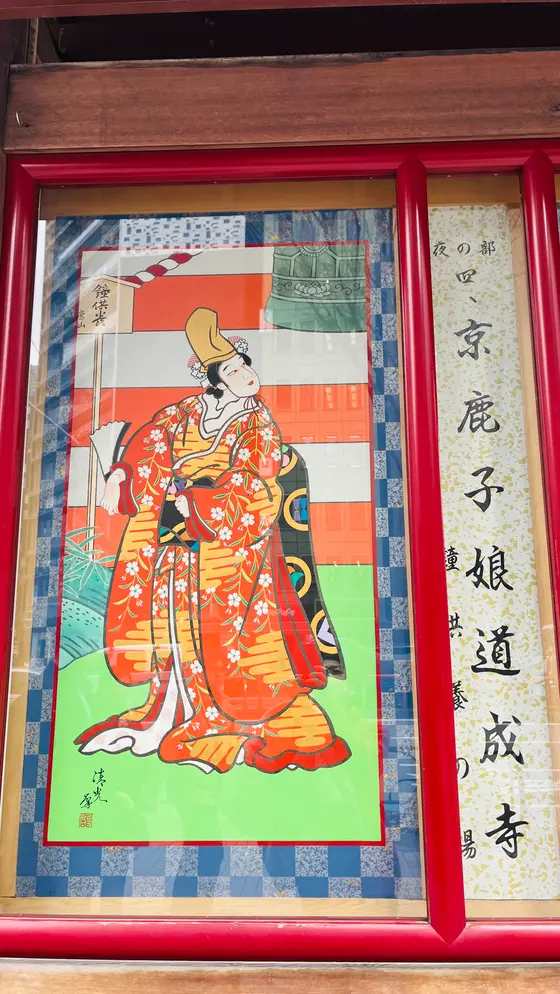 夜の部
四、京鹿子娘道成寺
鐘供養の場
鐘供養
当山
清光
筆